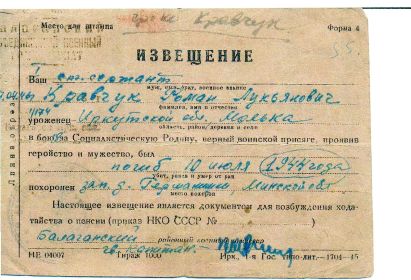 Место для штампа
гр-ке Кравчук
Форма 4
ИЗВЕЩЕНИЕ
Ваш ст. сержант
муж, сын, брат, военное звание
Кравчук Роман Лукьянович
фамилия, имя и отчество
уроженец Иркутской обл. Малька
область, район, деревня и село
в боях за Социалистическую Родину, верный воинской присяге, проявив
геройство и мужество, был
погиб 10 июля 1944 года
убит, ранен и умер от ран
похоронен зап. д. Минской обл
место похорон
Настоящее извещение является документом для возбуждения хода-
тайства о пенсии (приказ НКО СССР №
Балаганский районный военный
гв. капитан
НЕ 04007 Тираж 7000 Ирк. 1-я Гос. типо-лит.—1704—45